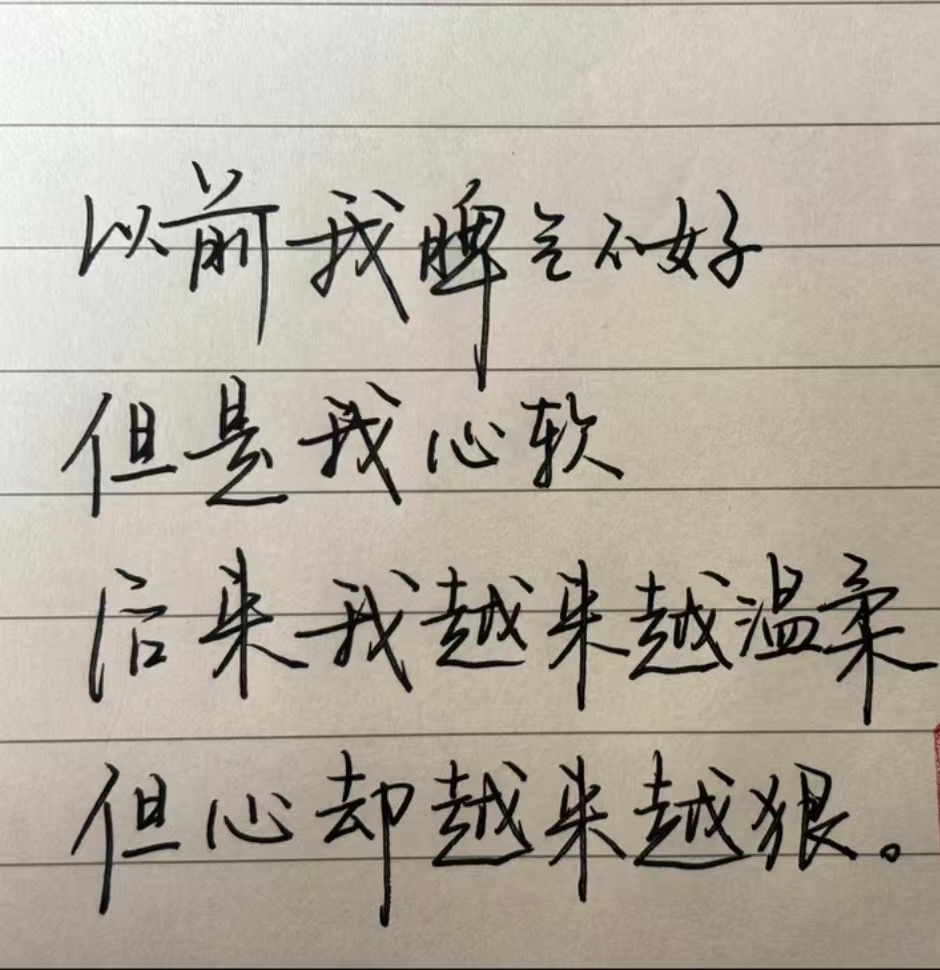 以前我脾气不好
但是我心软
后来我越来越温柔
但心却越来越狠。